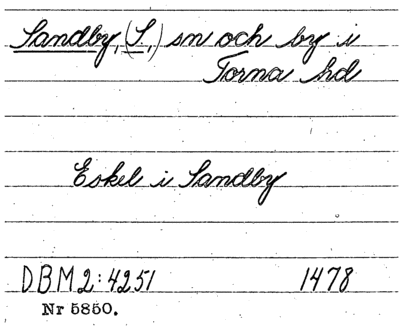 Sandby, (S.,) sn och by i
Torna hd
Eskel i Sandby
DBM 2:4251 1478
Nr 5850.